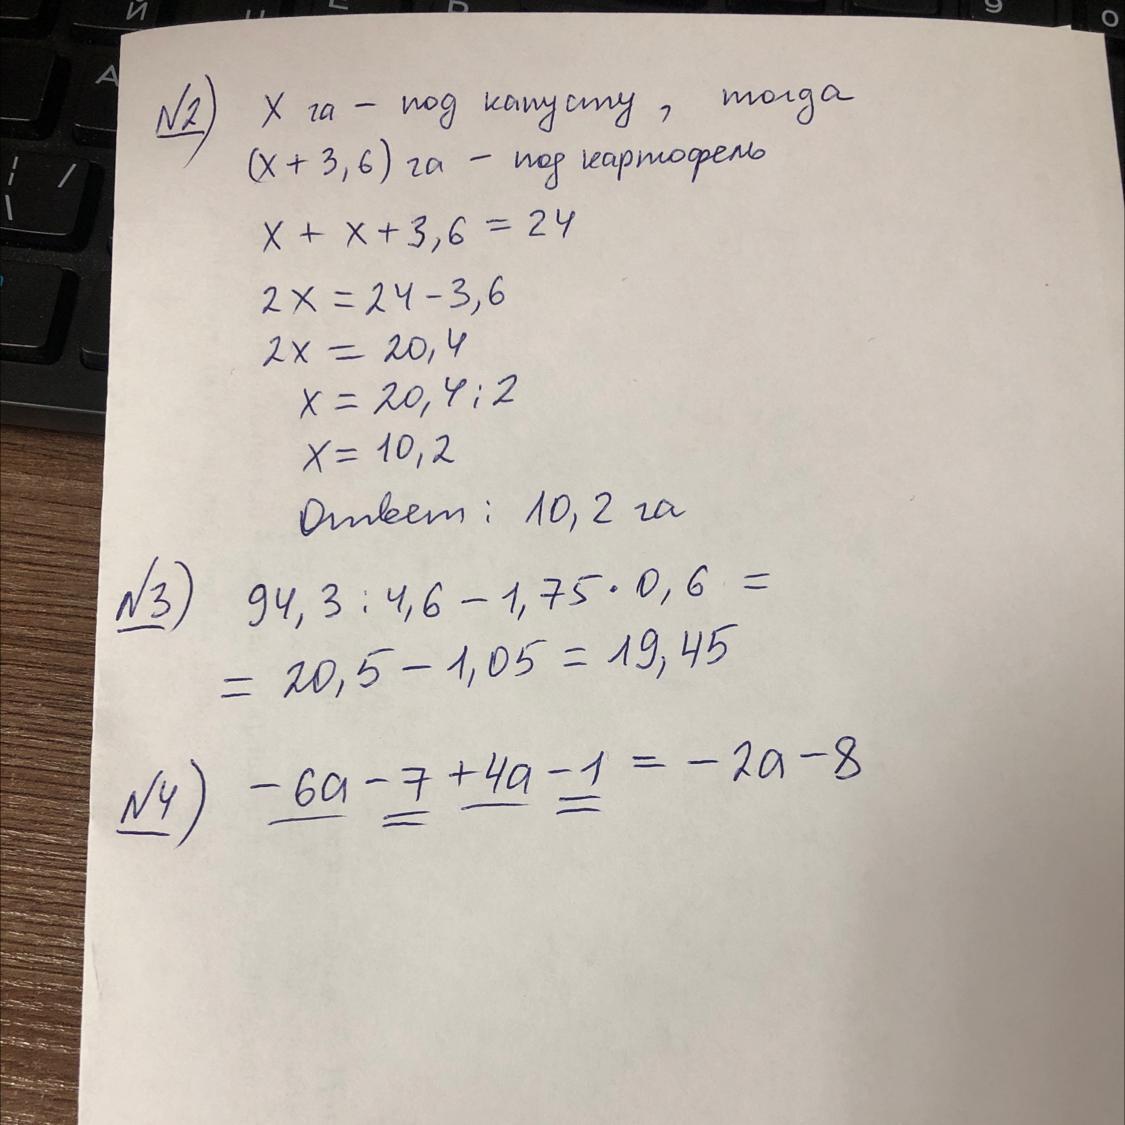 №2) x га – под капусту, тогда
(x + 3,6) га – под картофель
x + x + 3,6 = 24
2x = 24 – 3,6
2x = 20,4
x = 20,4 : 2
x = 10,2
Ответ: 10,2 га
№3) 94,3 : 4,6 – 1,75 · 0,6 =
= 20,5 – 1,05 = 19,45
№4) – 6a – 7 + 4a – 1 = – 2a – 8